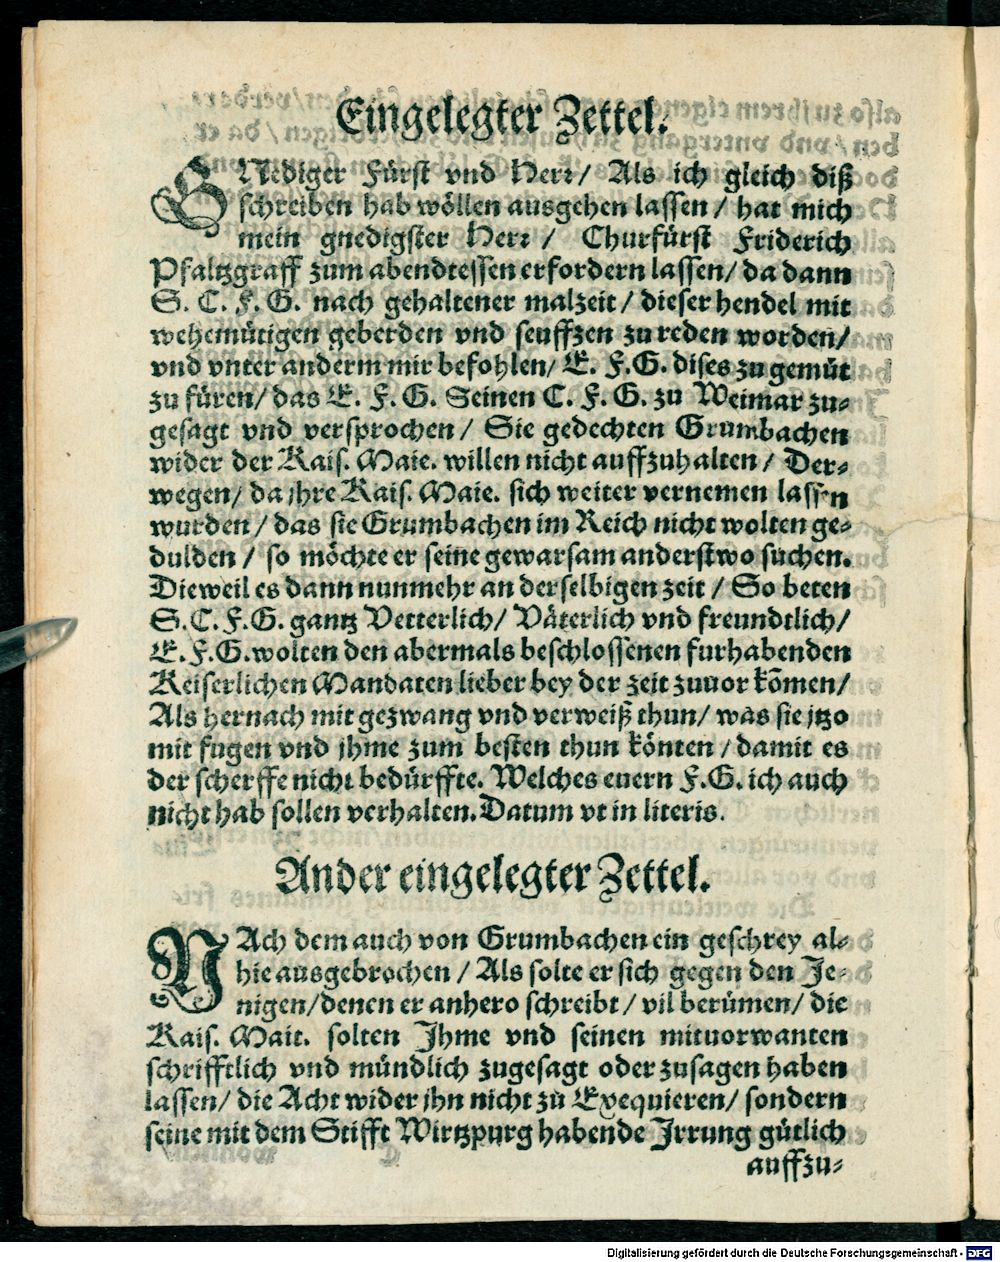 Eingelegter Zettel.
GNediger Fürst vnd Herr/ Als ich gleich diß
schreiben hab wöllen ausgehen lassen / hat mich
mein gnedigster Herr / Churfürst Friderich
Pfaltzgraff zum abendtessen erfordern lassen/ da dann
S. C. F. G. nach gehaltener malzeit / dieser hendel mit
wehemütigen geberden vnd seuffzen zu reden worden/
vnd vnter anderm mir befohlen/ E. F. G. dises zu gemüt
zu füren/ das E. F. G. Seinen C. F. G. zu Weimar zu-
gesagt vnd versprochen / Sie gedechten Grumbachen
wider der Kais. Maie. willen nicht auffzuhalten / Der-
wegen/ da jhre Kais. Maie. sich weiter vernemen lassen
wurden / das sie Grumbachen im Reich nicht wolten ge-
dulden / so möchte er seine gewarsam anderstwo suchen.
Dieweil es dann nunmehr an derselbigen zeit / So beten
S. C. F. G. gantz Vetterlich/ Väterlich vnd freundtlich/
E. F. G. wolten den abermals beschlossenen furhabenden
Keiserlichen Mandaten lieber bey der zeit zuuor kõmen/
Als hernach mit gezwang vnd verweiß thun/ was sie jtzo
mit fugen vnd jhme zum besten thun könten / damit es
der scherffe nicht bedürffte. Welches euern F. G. ich auch
nicht hab sollen verhalten. Datum vt in literis.
Ander eingelegter Zettel.
NAch dem auch von Grumbachen ein geschrey al-
hie ausgebrochen / Als solte er sich gegen den Je-
nigen/ denen er anhero schreibt / vil berümen/ die
Kais. Mait. solten Jhme vnd seinen mituorwanten
schrifftlich vnd mündlich zugesagt oder zusagen haben
lassen/ die Acht wider jhn nicht zu Exequieren/ sondern
seine mit dem Stifft Wirtzpurg habende Jrrung gütlich
auffzu-
Digitalisierung gefördert durch die Deutsche Forschungsgemeinschaft - DFG